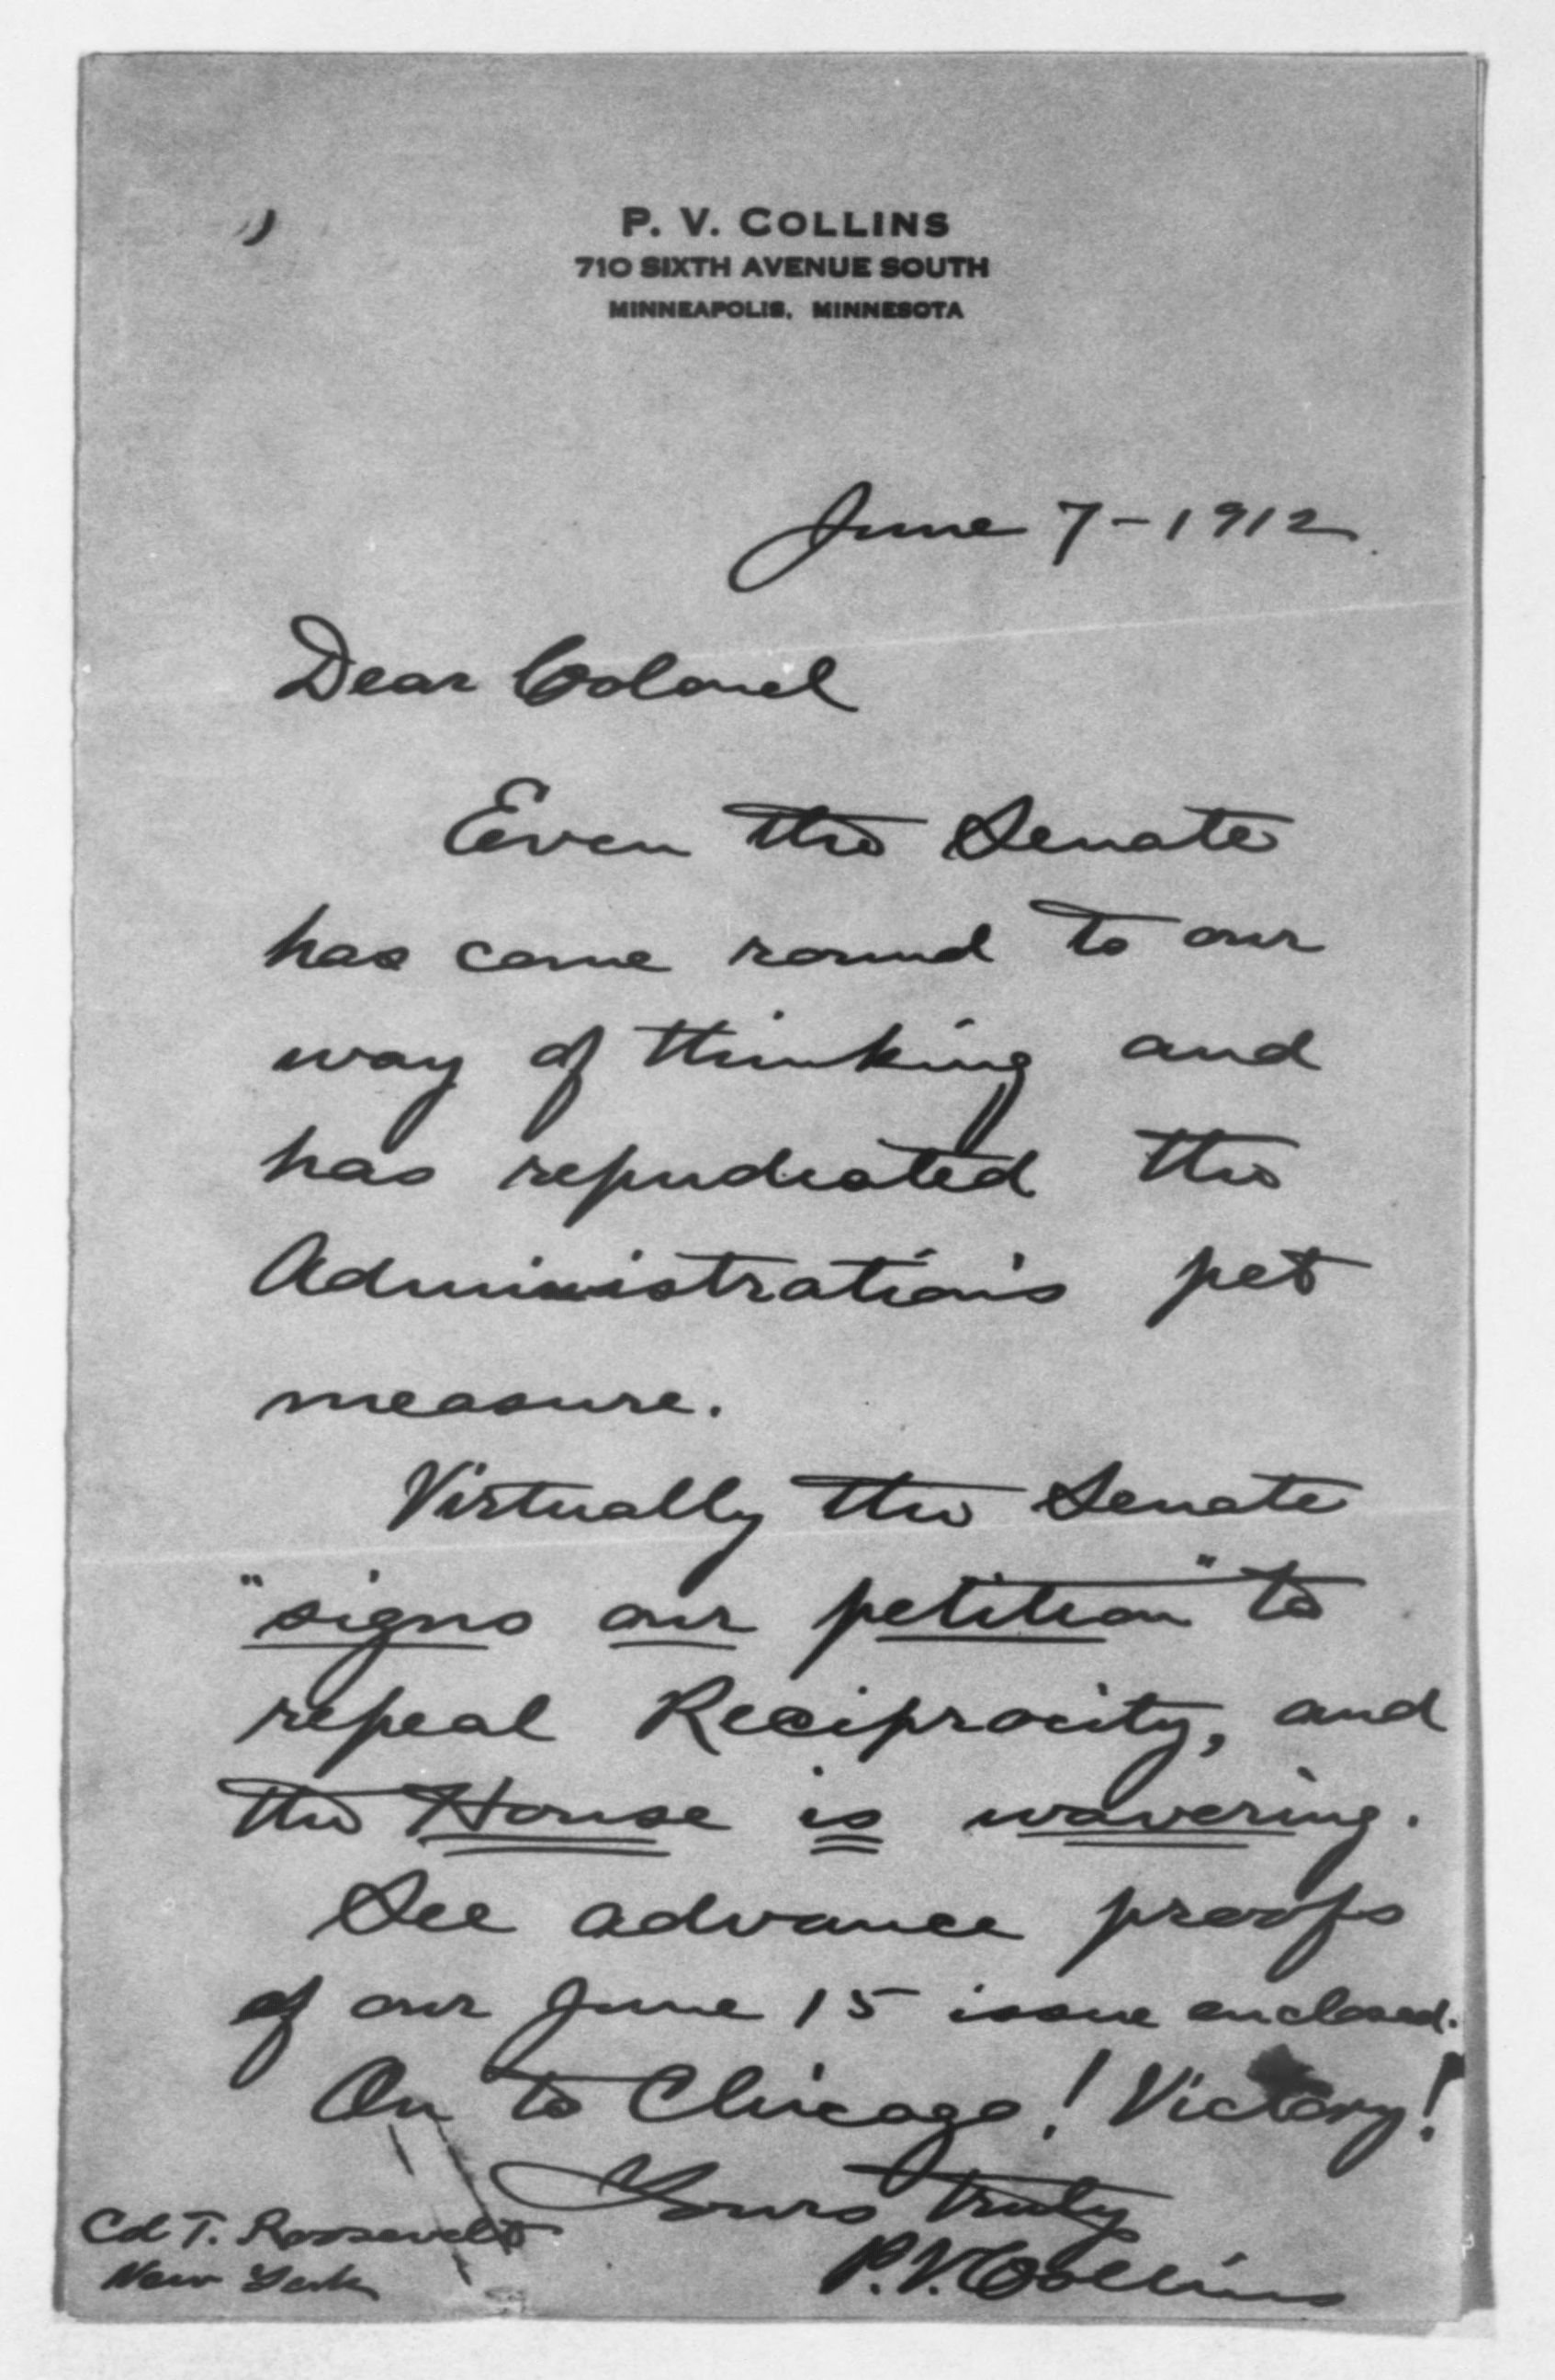 P. V. COLLINS
710 SIXTH AVENUE SOUTH
MINNEAPOLIS, MINNESOTA
June 7-1912.
Dear Colonel
Even the Senate
has come round to our
way of thinking and
has repudiated the
Administration's pet
measure.
Virtually the Senate
"signs our petition" to
repeal Reciprocity, and
the House is wavering.
See advance proofs
of our June 15 issue enclosed.
On to Chicago! Victory!
Yours truly
P.V. Collins
Col T. Roosevelt
New York